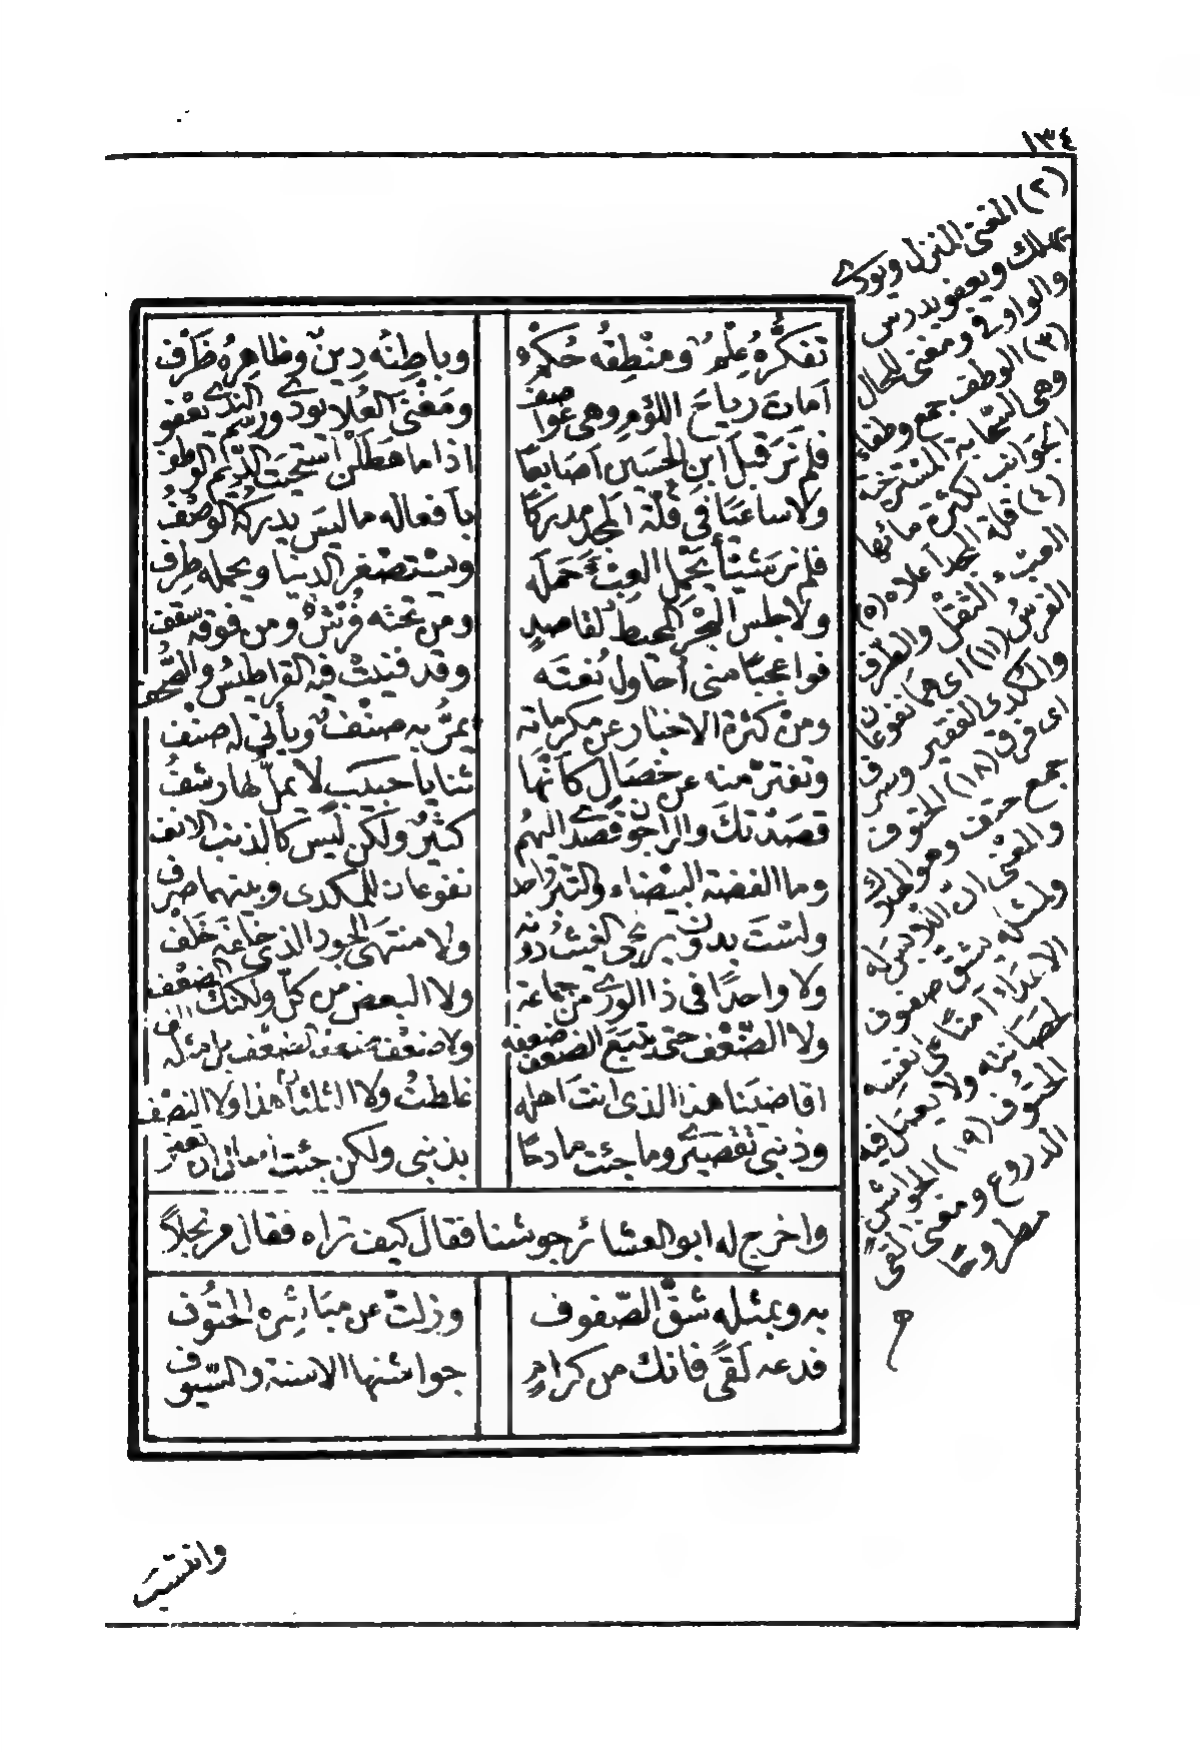 ١٣٤
تفكّرُهُ عِلْمٌ ومنْطِقُه حُكمٌ وباطِنُه دِينٌ وظاهِرُه ظَرْف
اَماتَ رياحَ اللؤمِ وهى عَواصِف ومَغْنى العُلا يُودى ورَسْم الندى يَعْفو
فلم نَرَ قبلَ ابنِ الحسَين اَصابعًا اذا ما هَطَلْن استحيَت الدِّيَم الوطفُ
ولا ساعيًا فى قُلّة المجد مدركًا بأفعاله ما ليسَ يدركهُ الوَصْفُ
فلم نر شيئًا يَحْمِل العِبْءَ حَمْلَه ويستصْغر الدنيا ويحمله طِرْف
ولا جلس البَحْر المحيط لقاصدٍ ومن تحته فُرْشٌ ومن فوقه سقف
فوا عجبًا منى أحاول نُعْتَه وقد فنيتْ فيه القراطيسُ والصُّحْف
ومنْ كثرة الاخبار عن مكرماته يمرُّ به صنْفٌ ويأتى له صنف
وتفترّ منه عن خصَالٍ كأنّها ثنايا حبيبٍ لا يملّ لها رشفُ
قصَدْتكَ والراجُونَ قصْدى اليْهُم كثيرٌ ولكن ليْسَ كالذنب الانف
وما الفضة البيْضاء والتبرُ واحدًا نفوعان للمكدى وبينهما صَرف
ولسْتَ بدونٍ يرتجى الغَيثُ دونه ولا منتهى الجود الذى خلفَه خَلْف
ولا واحدًا فى ذا الورى من جماعة ولا البعض من كلّ ولكنك الضعْفُ
ولا الضّعْف حتى يتبع الضعفَ ضعفُه ولا ضعْف ضعف الضعْف بل مثله الف
اقاضينا هذا الذى انتَ اهله غلطتُ ولا الثلثان هذا ولا النصْفُ
وذنبى تقصيرى وما جئت مادحًا بذنبى ولكن جئتُ اسأل ان تعفو
واخرج له ابو العشائر جوشنا فقال كيف تراه فقال مرتجلاً
به وبمثله شقّ الصّفوف وزلّت عن مبَاشِره الحتُوف
فدعه لَقًى فانك من كرامٍ جواشنها الاسنة والسّيوف
(٢) المغنى المنزل ويودى
يهلك ويعفو يدرس
والواو فى ومغنى للحال
(٣) الوطف جمع وطفاء
وهى السّحابة المسترخية
الجوانب لكثرة مائها
(٤) قلة المجد اعلاه (٥)
العبء الثقل والطِّرْف
الفرس (١١) اى هما نفوعان
والمكدى الفقير وصرف
اى فرق (١٨) الحتوف
جمع حتف وهو الهلاك
والمعْنى انّ اللابسَ له
ولمثله يشق صفوف
الاعداء آمنًا على نفسه
لحصَانته ولا يعمَل فيه
الحتُوف (١٩) الجواشن
الدروع ومعنى لقى
مطروحًا
وانتسَبَ